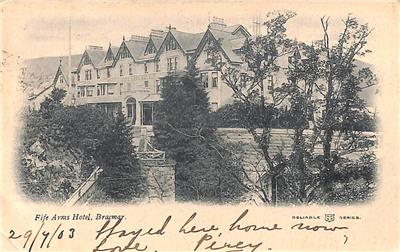 Fife Arms Hotel, Braemar.
RELIABLE SERIES.
29/7/03 Stayed here, home now,
Love. Percy.